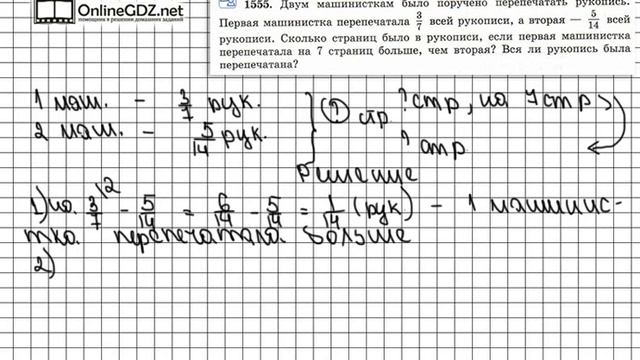 OnlineGDZ.net
1555. Двум машинисткам было поручено перепечатать рукопись.
Первая машинистка перепечатала 3/7 всей рукописи, а вторая — 5/14 всей
рукописи. Сколько страниц было в рукописи, если первая машинистка
перепечатала на 7 страниц больше, чем вторая? Вся ли рукопись была
перепечатана?
1 маш. - 3/7 рук. ? стр, на 7 стр
2 маш. - 5/14 рук. ? стр
? стр
Решение
1) на 3/7 - 5/14 = 6/14 - 5/14 = 1/14 (рук) - 1 машинис-
тка перепечатала больше
2)